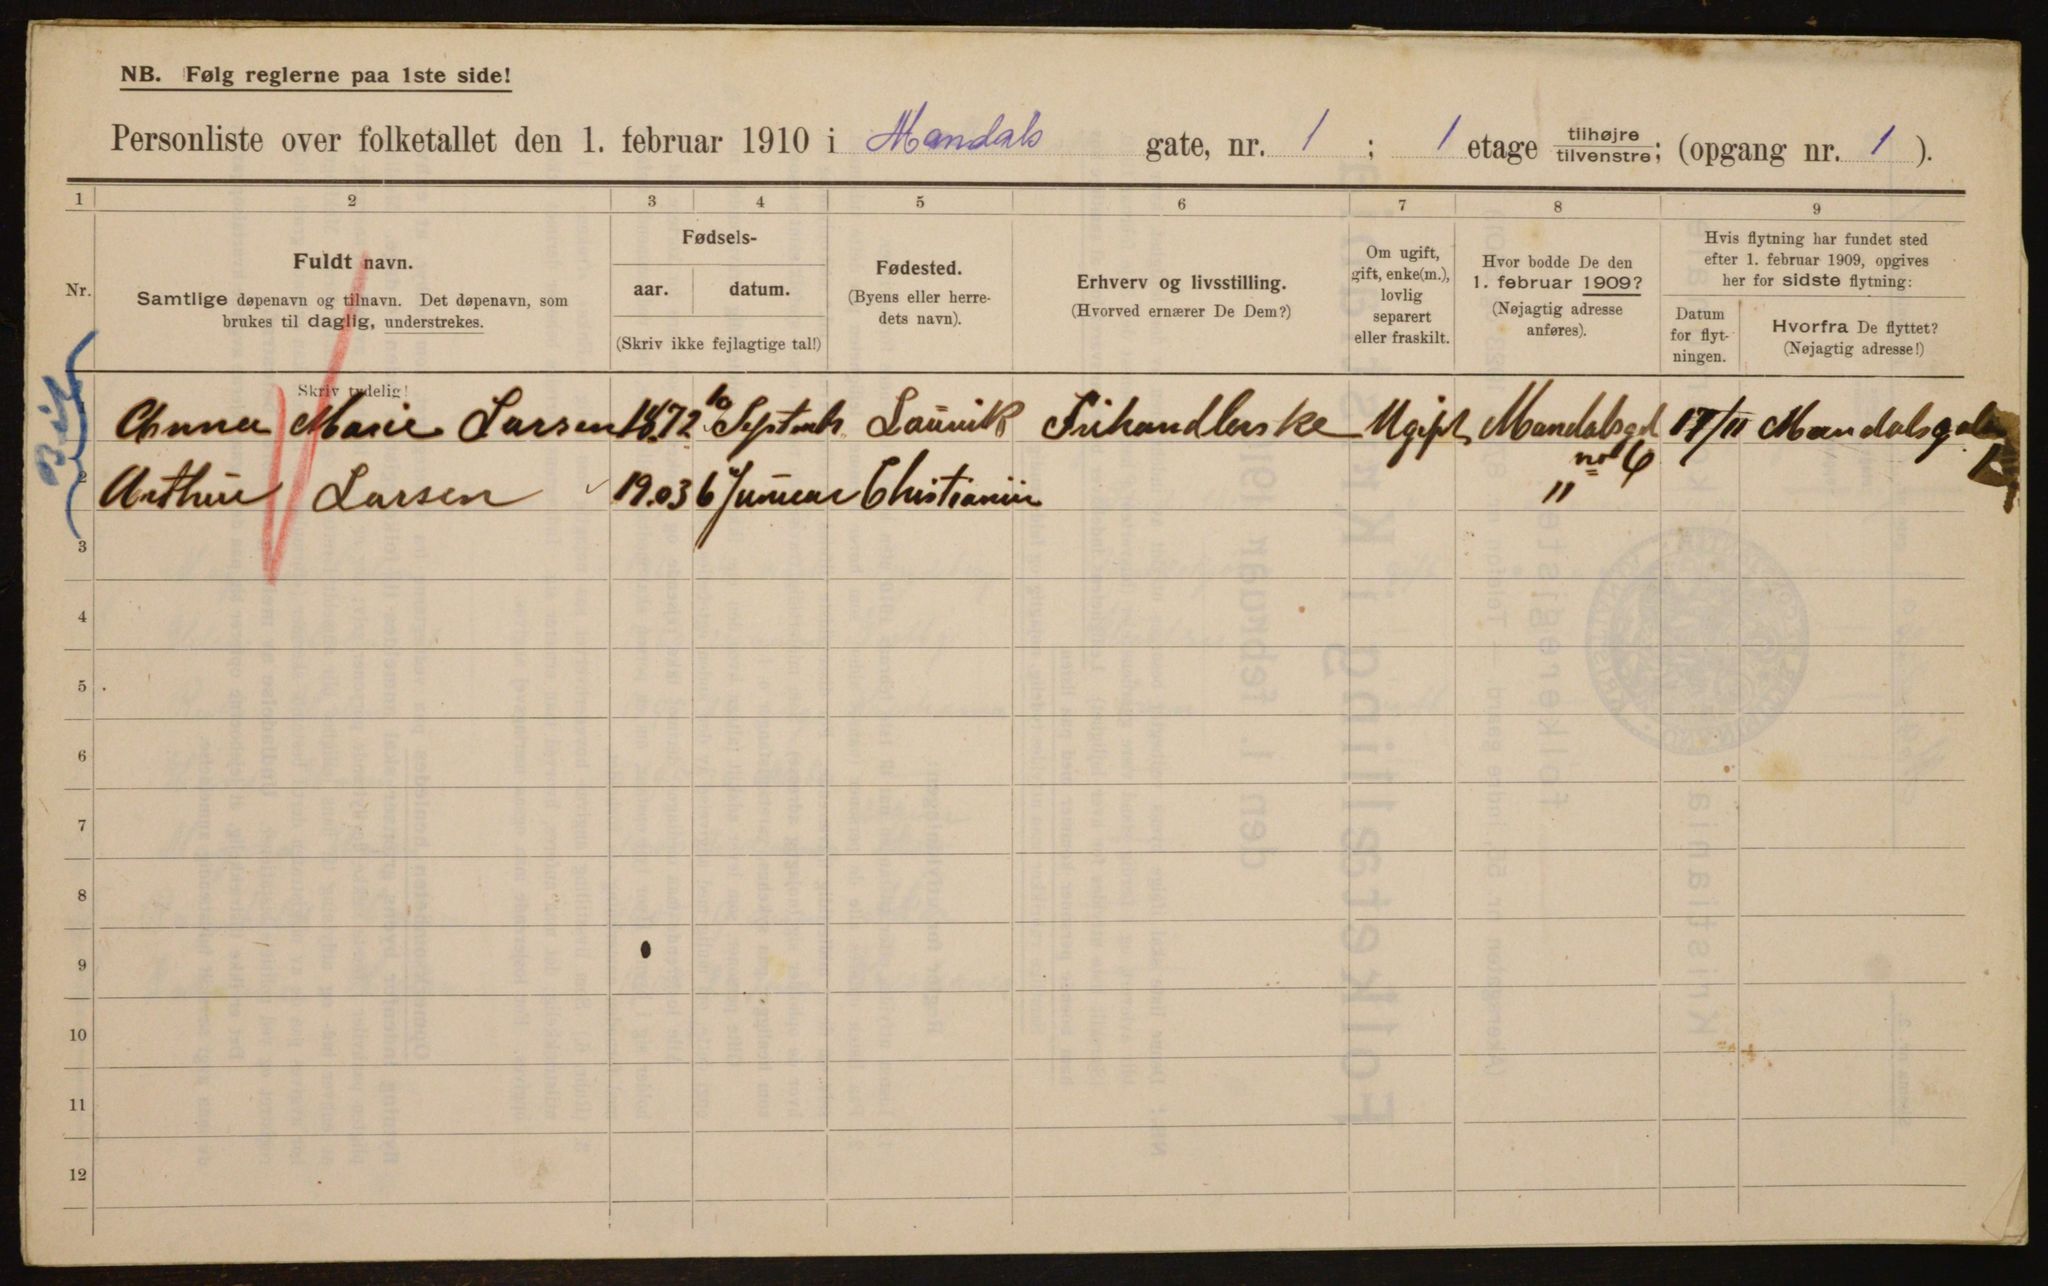 NB. Følg reglerne paa 1ste side!
Personliste over folketallet den 1. februar 1910 i Mandals gate, nr. 1 ; 1 etage tilhøjre/tilvenstre; (opgang nr. 1 ).
1 2 3 4 5 6 7 8 9
Nr.
Fuldt navn.
Samtlige døpenavn og tilnavn. Det døpenavn, som
brukes til daglig, understrekes.
Skriv tydelig!
Fødsels-
aar. datum.
(Skriv ikke fejlagtige tal!)
Fødested.
(Byens eller herre-
dets navn).
Erhverv og livsstilling.
(Hvorved ernærer De Dem?)
Om ugift,
gift, enke(m.),
lovlig
separert
eller fraskilt.
Hvor bodde De den
1. februar 1909?
(Nøjagtig adresse
anføres).
Hvis flytning har fundet sted
efter 1. februar 1909, opgives
her for sidste flytning:
Datum
for flyt-
ningen.
Hvorfra De flyttet?
(Nøjagtig adresse!)
Anna Marie Larsen 1872 10 Septemb Laurvik Frihandlerske Ugift Mandalsgd 17/11 Mandalsgaten
no 6
2 Arthur Larsen 1903 6 Januar Christiania "
3
4
5
6
7
8
9
10
11
12